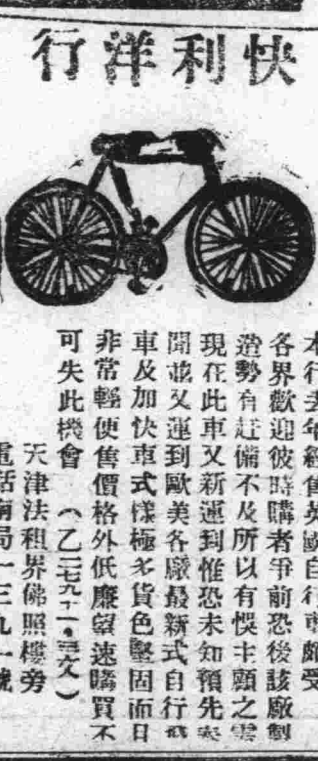 快利洋行
本行去年經售英國自行車頗受
各界歡迎彼時購者爭前恐後該廠製
造勢有赶備不及所以有悞主顧之需
現在此車又新運到惟恐未知預先奉
聞茲又運到歐美各廠最新式自行
車及加快車式樣極多貨色堅固而日
非常輕便售價格外低廉望速購買不
可失此機會 (乙二七九十一・三文)
天津法租界佛照樓旁
電話南局一三九一號